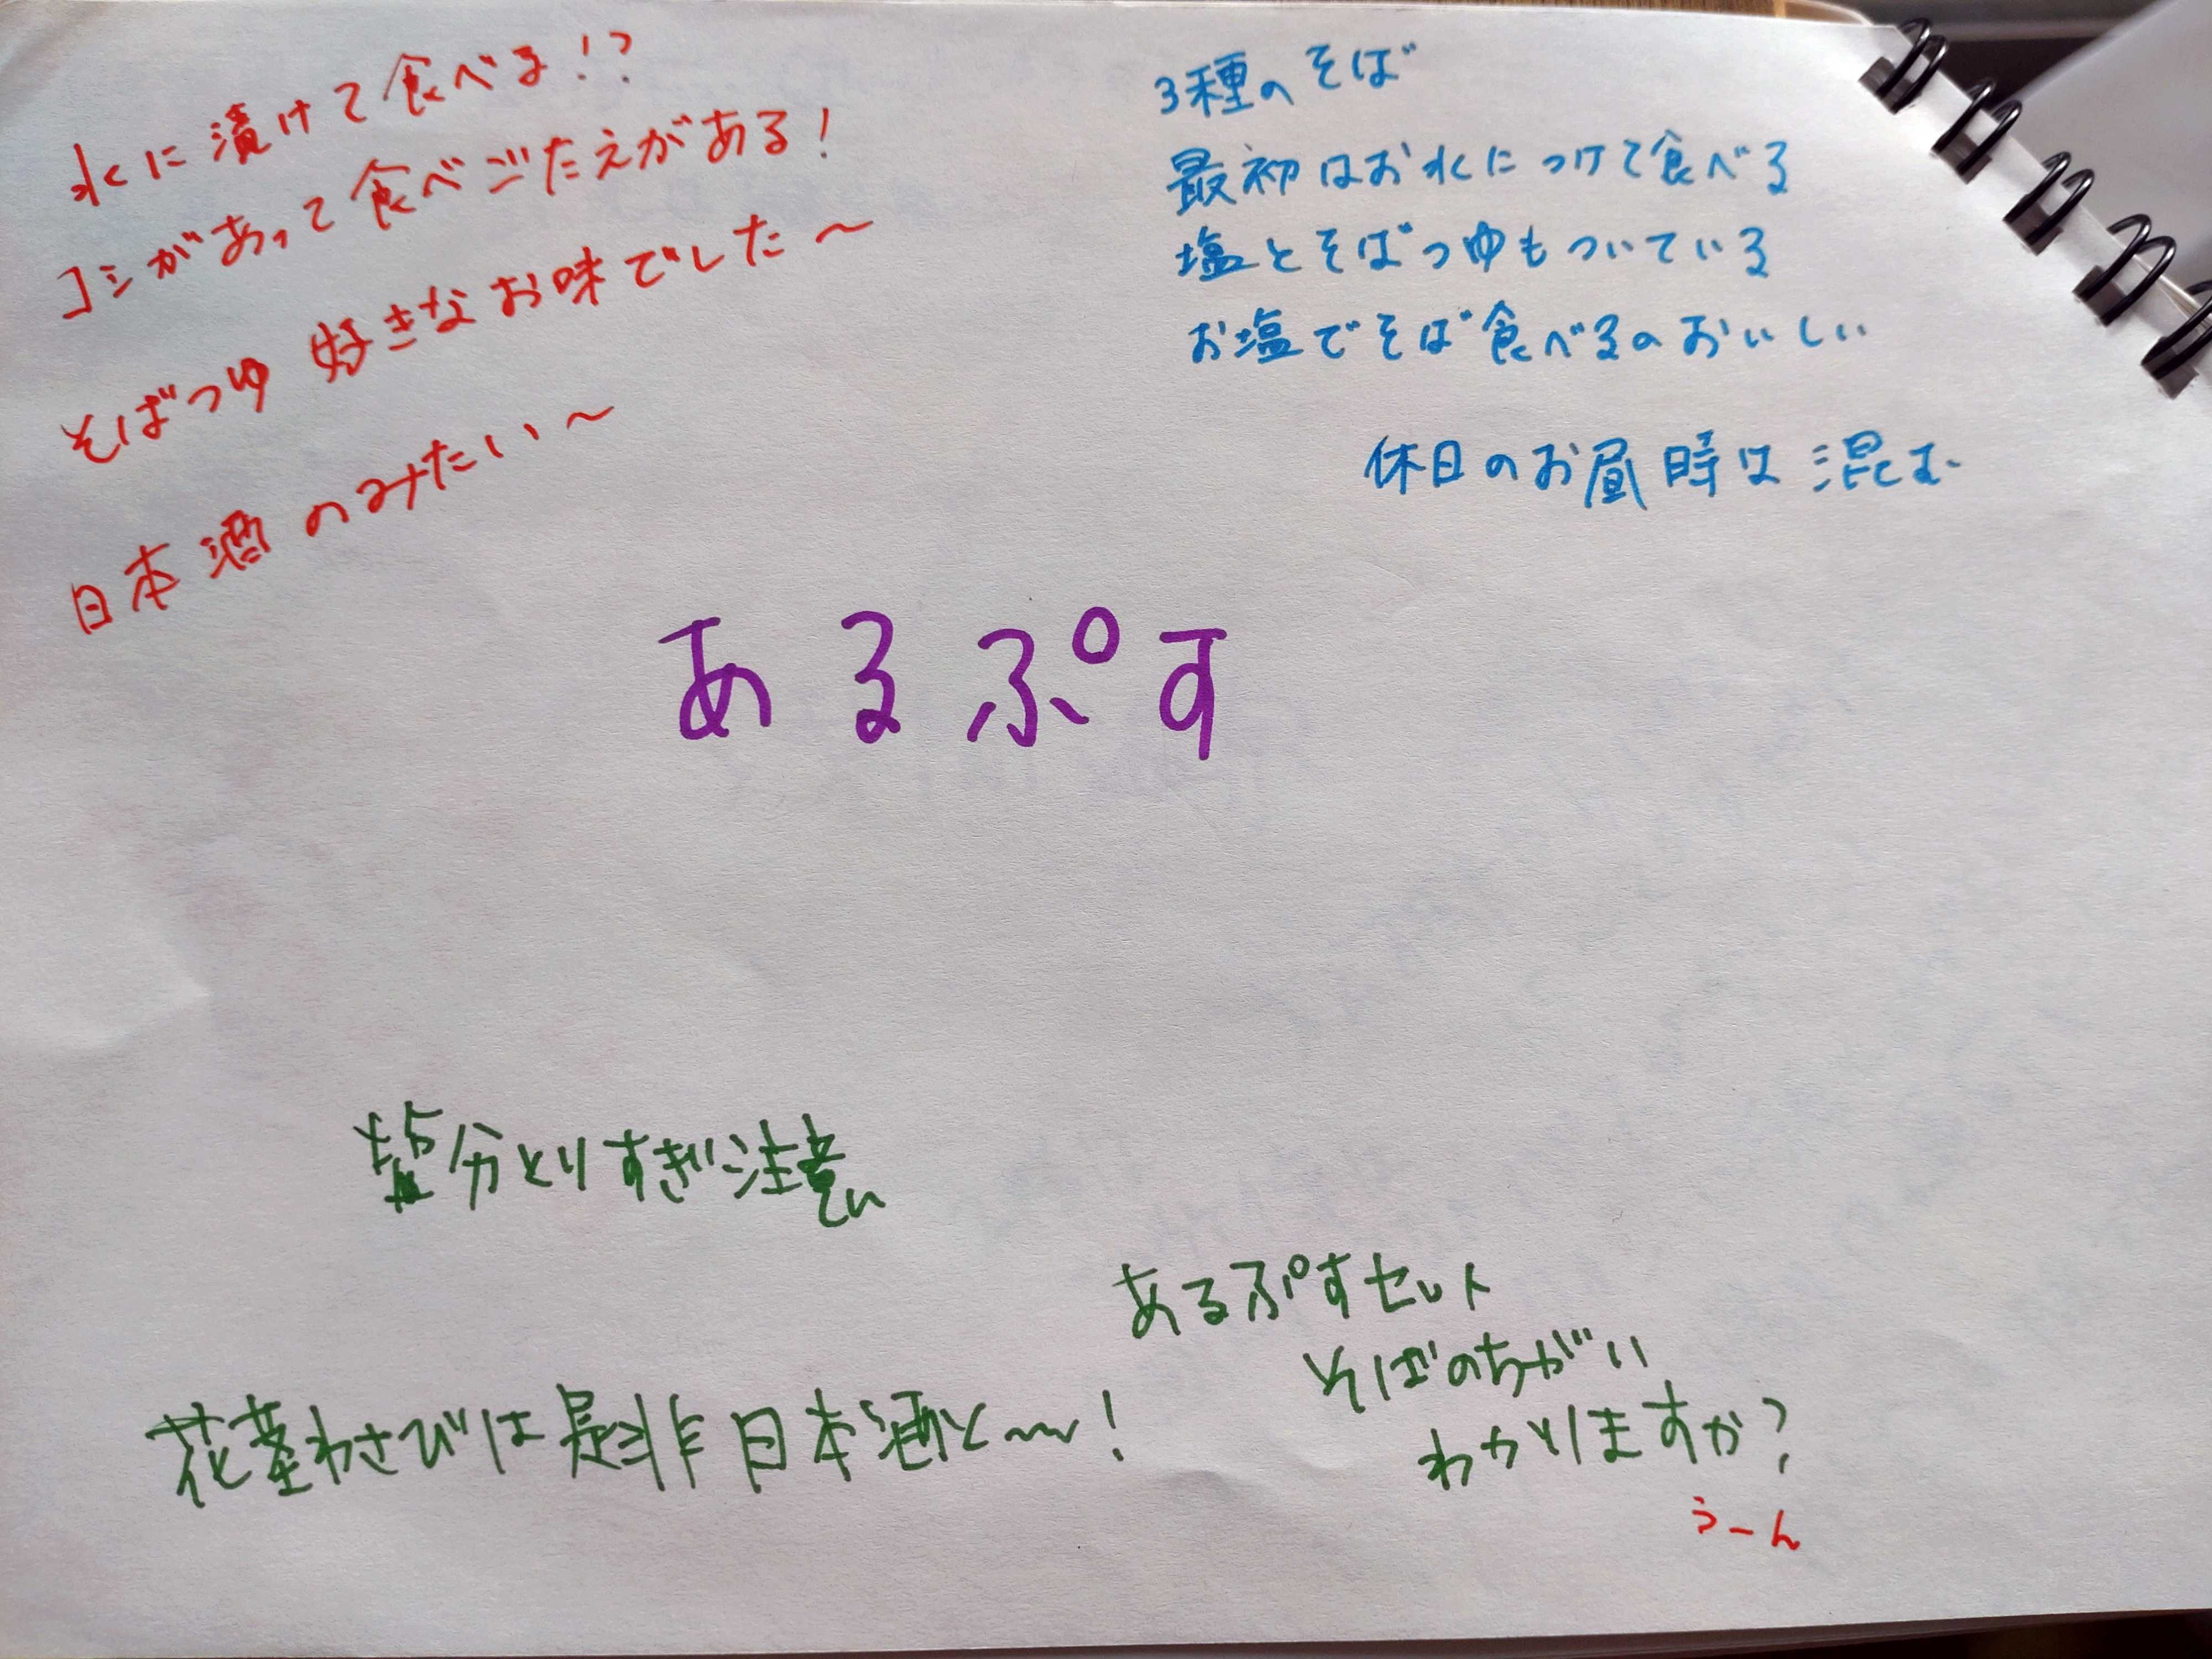 水に漬けて食べる!?
コシがあって食べごたえがある!
そばつゆ 好きなお味でした〜
日本酒のみたい〜
3種のそば
最初はお水につけて食べる
塩とそばつゆもついている
お塩でそば食べるのおいしい
休日のお昼時は混む
あるぷす
塩分とりすぎ注意
花茎わさびは是非日本酒と〜!
あるぷすセット
そばのちがい
わかりますか?
うーん